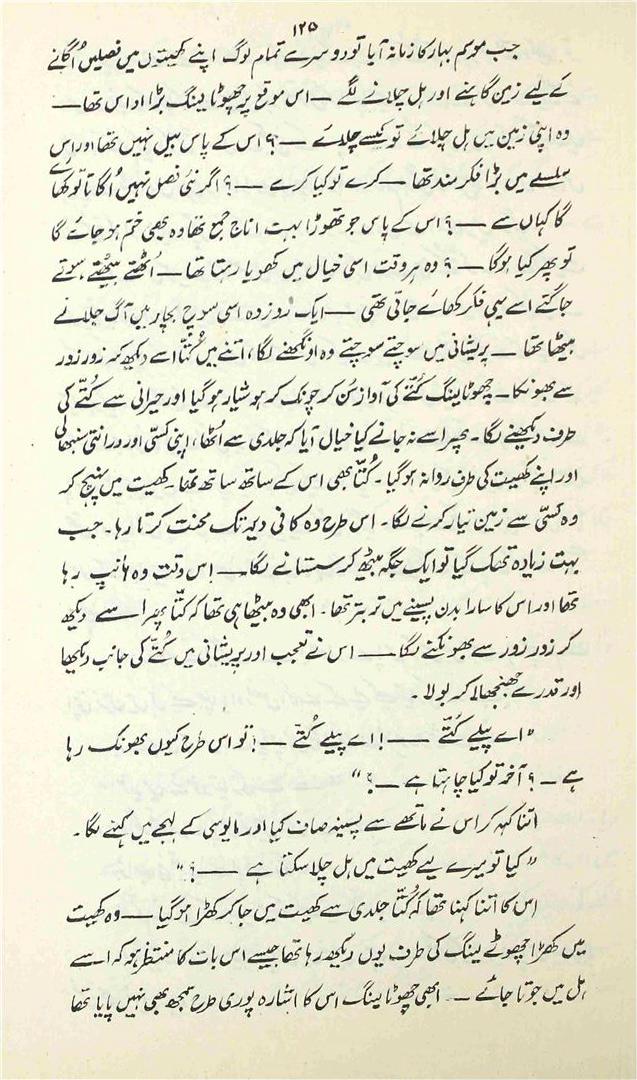 ۱۲۵
جب موسم بہار کا زمانہ آیا تو دوسرے تمام لوگ اپنے کھیتوں میں فصلیں اُگانے
کے لیے زمین گاہنے اور ہل چلانے لگے — اس موقع پر چھوٹا ینگ بڑا اداس تھا —
وہ اپنی زمین میں ہل چلائے تو کیسے چلائے —؟ اس کے پاس بیل نہیں تھا اور اس
سلسلے میں بڑا فکر مند تھا — کرے تو کیا کرے —؟ اگر نئی فصل نہیں اُگاتا تو کھائے
گا کہاں سے —؟ اس کے پاس جو تھوڑا بہت اناج جمع تھا وہ بھی ختم ہو جائے گا
تو پھر کیا ہوگا —؟ وہ ہر وقت اسی خیال میں کھویا رہتا تھا — اُٹھتے بیٹھتے سوتے
جاگتے اسے یہی فکر کھائے جاتی تھی — ایک روز وہ اسی سوچ بچار میں آگ جلائے
بیٹھا تھا — پریشانی میں سوچتے سوچتے وہ اونگھنے لگا، اتنے میں کُتّا اسے دیکھ کر زور زور
سے بھونکا۔ چھوٹا ینگ کُتّے کی آواز سُن کر چونک کر ہوشیار ہو گیا اور حیرانی سے کُتّے کی
طرف دیکھنے لگا۔ پھر اسے نہ جانے کیا خیال آیا کہ جلدی سے اُٹھا، اپنی کسّی اور درانتی سنبھالی
اور اپنے کھیت کی طرف روانہ ہو گیا۔ کُتّا بھی اس کے ساتھ ساتھ تھا۔ کھیت میں پہنچ کر
وہ کسّی سے زمین تیار کرنے لگا۔ اس طرح وہ کافی دیر تک محنت کرتا رہا۔ جب
بہت زیادہ تھک گیا تو ایک جگہ بیٹھ کر سستانے لگا — اس وقت وہ ہانپ رہا
تھا اور اس کا سارا بدن پسینے میں تر بتر تھا۔ ابھی وہ بیٹھا ہی تھا کہ کُتّا پھر اسے دیکھ
کر زور زور سے بھونکنے لگا — اس نے تعجب اور پریشانی میں کُتّے کی جانب دیکھا
اور قدرے جھنجھلا کر بولا۔
"اے پیلے کُتّے —! اے پیلے کُتّے —! تو اس طرح کیوں بھونک رہا
ہے —؟ آخر تو کیا چاہتا ہے —؟"
اتنا کہہ کر اس نے ماتھے سے پسینہ صاف کیا اور مایوسی کے لہجے میں کہنے لگا۔
"کیا تو میرے لیے کھیت میں ہل چلا سکتا ہے —؟"
اس کا اتنا کہنا تھا کہ کُتّا جلدی سے کھیت میں جا کر کھڑا ہو گیا — وہ کھیت
میں کھڑا چھوٹے ینگ کی طرف یوں دیکھ رہا تھا جیسے اس بات کا منتظر ہو کہ اسے
ہل میں جوتا جائے — ابھی چھوٹا ینگ اس کا اشارہ پوری طرح سمجھ بھی نہیں پایا تھا